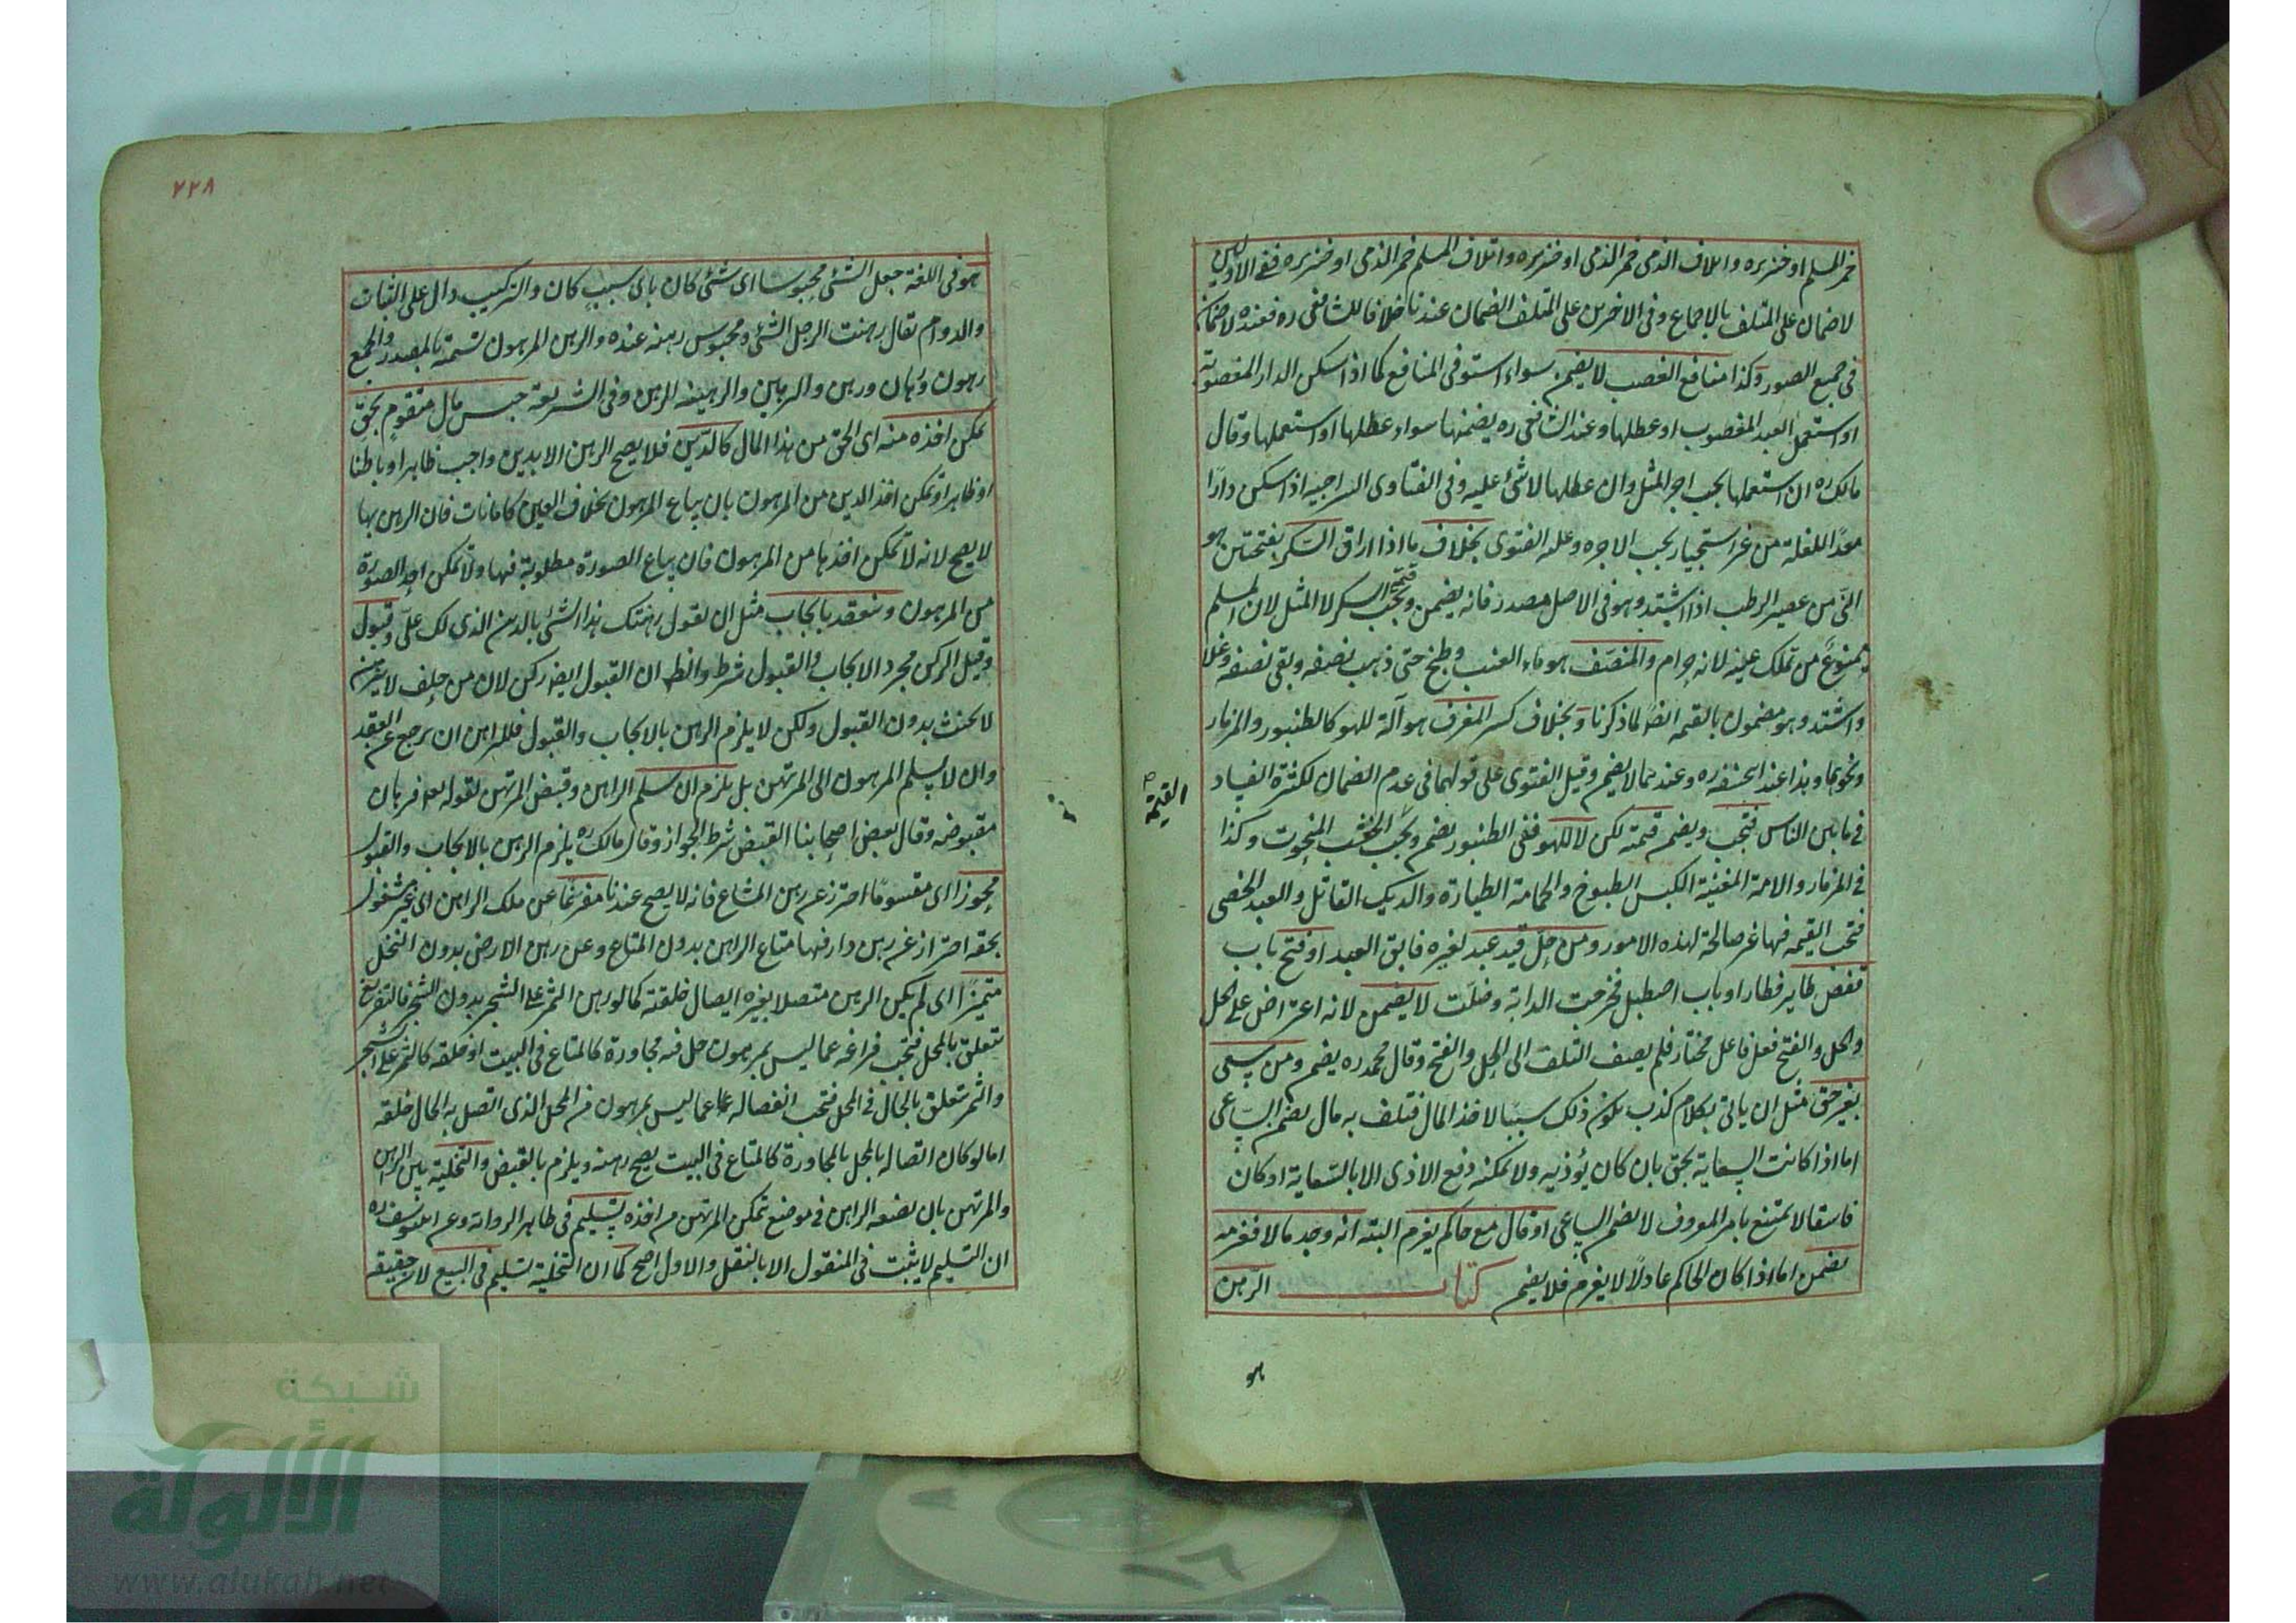 خمر المسلم او خنزيره واتلاف الذمى خمر الذمى او خنزيره واتلاف المسلم خمر الذمى او خنزيره ففى الاوليين
لا ضمان على المتلف بالاجماع وفى الاخرين على المتلف الضمان عندنا خلافا للشافعى ره فعنده لا ضمان
فى جميع الصور وكذا منافع الغصب لا يضمن سواء استوفى المنافع كما اذا سكن الدار المغصوبة
او استعمل العبد المغصوب او عطلها وعند الشافعى ره يضمنها سواء عطلها او استعملها وقال
مالك ره ان استعملها يجب اجر المثل وان عطلها لا شئ عليه وفى الفتاوى السراجية اذا سكن دارًا
معدًا للغلة من غير استيجار يجب الاجره وعليه الفتوى بخلاف ما اذا اراق السَّكَر بفتحتين هو
النى من عصير الرطب اذا اشتد وهو فى الاصل مصدر فانه يضمن ويجب قيمة السكر لا المثل لان المسلم
ممنوعٌ من تملك عينه لانه حرام والمنصَّف هو ماء العنب وطبخ حتى ذهب نصفه وبقى نصفه وغلا
واشتد وهو مضمون بالقيمه ايضًا لما ذكرنا وبخلاف كسر المعزف هو آلة للهو كالطنبور والمزمار
ونحوهما وهذا عند ابيحنيفه ره وعندهما لا يضم وقيل الفتوى على قولهما فى عدم الضمان لكثرة الفساد
فى ما بين الناس فتجب ويضم قيمته لكن لا للهو ففى الطنبور يضم ويجب الخشب المنحوت وكذا
القيمة
فى المزمار والامة المغنية الكبش النطوح والحمامة الطيارة والديك القاتل والعبد الخصى
فتجب القيمه فيها غير صالحة لهذه الامور ومن حلّ قيد عبد لغيره فابق العبد او فتح باب
قفص طاير فطار او باب اصطبل فخرجت الدابة وضلّت لا يضمن لانه اعتراض على الحل
والحل والفتح فعل فاعل مختار فلم يضف التلف الى الحل والفتح وقال محمد ره يضم ومن سعى
بغير حق مثل ان يأتى بكلام كذب يكون ذلك سببًا لاخذ المال فتلف به مال يضم الساعى
اما اذا كانت السعاية بحق بان كان يؤذيه ولا يمكنه دفع الاذى الا بالسعاية او كان
فاسقا لا يمتنع بامر المعروف لا يضم الساعى او قال مع حاكم يغرم البته انه وجد مالا فغرمه
يضمن اما اذا كان الحاكم عادلًا لا يغرم فلا يضم كتاب الرهن
هو
٧٢٨
هو فى اللغة جعل الشئ محبوسا اى شئ كان باى سبب كان والتركيب دال على الثبات
والدوام يقال رهنت الرجل الشئ ومحبوس رهنه عنده والرهن المرهون تسمية بالمصدر والجمع
رهون ورهان ورهن والرهين والرهينه الرهن وفى الشريعة حبس مال متقوم بحق
يمكن اخذه منه اى الحق من هذا المال كالدّين فلا يصح الرهن الا بدين واجب ظاهرا وباطنا
او ظاهرا ويمكن اخذ الدين من المرهون بان يباع المرهون بخلاف العين كامانات فان الرهن بها
لا يصح لانه لا تمكن اخذها من المرهون فان يباع الصورة مطلوبة فيها ولا تمكن اخذ الصورة
من المرهون وينعقد بايجاب مثل ان يقول رهنتك هذا الشئ بالدين الذى لك علىّ وقبول
وقيل الركن مجرد الايجاب والقبول شرط والظ ان القبول ايضا ركن لان من حلف لا يرهن
لا يحنث بدون القبول ولكن لا يلزم الرهن بالايجاب والقبول فللراهن ان يرجع عن العقد
وان لا يسلم المرهون الى المرتهن بل يلزم ان سلم الراهن وقبض المرتهن لقوله تعه فرهان
مقبوضه وقال بعض اصحابنا القبض شرط الجواز وقال مالك ره يلزم الرهن بالايجاب والقبول
محوزا اى مقسومًا احترز عن رهن المشاع فانه لا يصح عندنا مفرغًا عن ملك الراهن اى غير مشغول
بحقه احتراز عن رهن دار فيها متاع الراهن بدون المتاع وعن رهن الارض بدون النخل
متميزًا اى لم يكن الرهن متصلا بغيره ايصال خلقة كما لو رهن الثمر على الشجر بدون الشجر فالتفريغ
يتعلق بالمحل فتجب فراغه عما ليس بمرهون حل فيه مجاورة كالمتاع فى البيت او خلقه كالثمر على الشجر
والثمر يتعلق بالحال فى المحل فتجب انفصاله عما ليس بمرهون من المحل الذى اتصل به الحال خلقه
اما لو كان اتصاله بالمحل بالمجاورة كالمتاع فى البيت يصح رهنه ويلزم بالقبض والتخلية بين الرهن
والمرتهن بان يضعه الراهن فى موضع تمكن المرتهن من اخذه تسليم فى ظاهر الرواية وعن ابى يوسف ره
ان التسليم لا يثبت فى المنقول الا بالنقل والاول اصح كما ان التخلية تسليم فى البيع لان حقيقة
شبكة
الألوكة
www.alukah.net